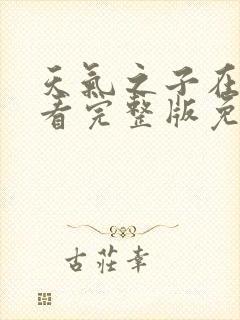 天氣之子在
看完整版免
古莊幸